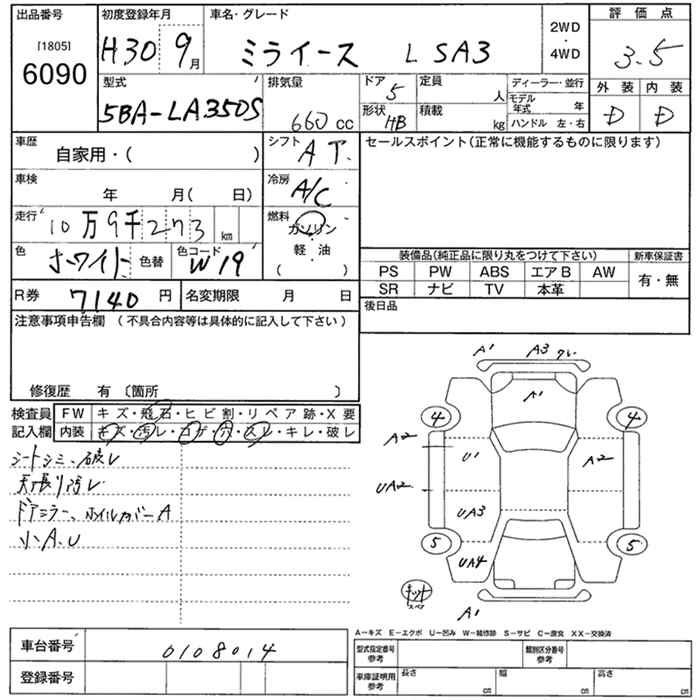 出品番号
[1805]
6090
初度登録年月
H30 9月
車名・グレード
ミライース L SA3
2WD
・
4WD
評価点
3.5
外装 内装
D D
型式
5BA-LA350S
排気量
660 cc
ドア 5
形状 HB
定員 人
積載 kg
ディーラー・並行
モデル年式 年
ハンドル 左・右
車歴
自家用・( )
シフト AT
セールスポイント(正常に機能するものに限ります)
車検 年 月( 日)
冷房 A/C
走行 10万9千273 km
燃料
ガソリン
・
軽油
( )
色 ホワイト 色替
色コード W19
装備品(純正品に限り丸をつけて下さい)
新車保証書
PS PW ABS エアB AW
有・無
SR ナビ TV 本革
R券 7140 円
名変期限 月 日
後日品
注意事項申告欄 (不具合内容等は具体的に記入して下さい)
修復歴 有 〔箇所 〕
検査員
記入欄
FW キズ・飛石・ヒビ割・リペア跡・X要
内装 キズ・汚レ・コゲ・穴・スレ・キレ・破レ
シートシミ、破レ
天張り汚レ
ドアミラー、ホイルカバーA
小A.U
A1 A3
A1
4 4
A2 U1 A2
UA2
UA3
5 5
UA4
キット
スペア
A1
A-キズ E-エクボ U-凹み W-補修跡 S-サビ C-腐食 XX-交換済
車台番号 0108014
登録番号
型式指定番号
参考
類別区分番号
参考
車庫証明用
参考
長さ cm
幅 cm
高さ cm